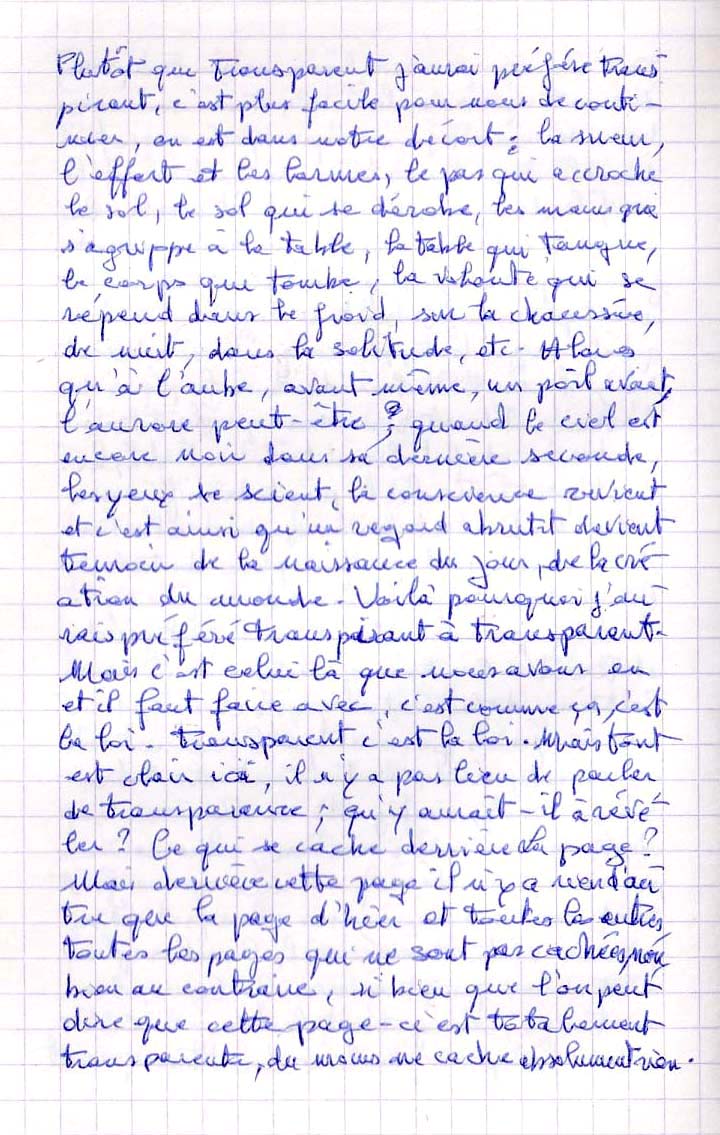 Plutôt que transparent j'aurai préféré trans
pirant, c'est plus facile pour nous de conti-
nuer, on est dans notre décort : la sueur,
l'effort et les larmes, le pas qui accroche
le sol, le sol qui se dérobe, les mains qui
s'agrippe à la table, la table qui tangue,
le corps qui tombe, la volonté qui se
répend dans le froid, sur la chaussée,
de nuit, dans la solitude, etc. Alors
qu'à l'aube, avant même, un poil avant,
l'aurore peut-être ?, quand le ciel est
encore noir dans sa dernière seconde,
les yeux se scient, la conscience revient
et c'est ainsi qu'un regard abrutit devient
témoin de la naissance du jour, de la cré
ation du monde. Voilà pourquoi j'au
rais préféré transpirant à transparent.
Mais c'est celui là que nous avons eu
et il faut faire avec, c'est comme ça, c'est
la loi. Transparent c'est la loi. Mais tout
est clair ici, il n'y a pas lieu de parler
de transparence ; qu'y aurait-il à révé-
ler ? Ce qui se cache derrière la page ?
Mais derrière cette page il n'y a rien d'au
tre que la page d'hier et toutes les autres,
toutes les pages qui ne sont pas cachées, non
bien au contraire, si bien que l'on peut
dire que cette page-ci est totalement
transparente, du moins ne cache absolument rien.